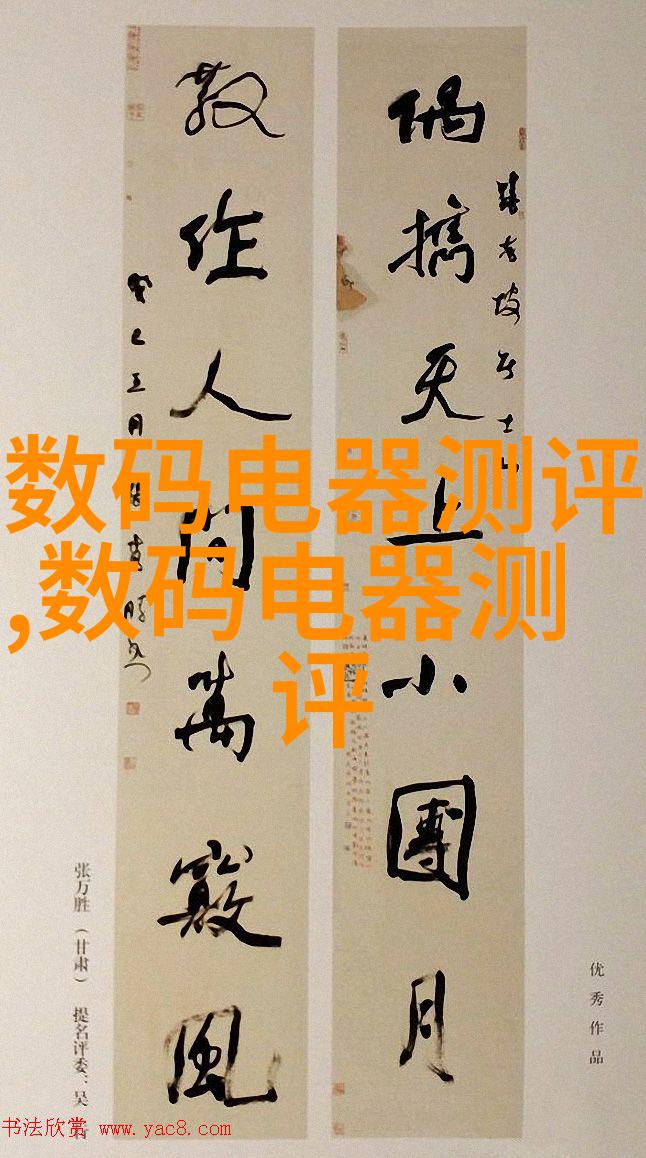 偶擕天上小團月
散作人间萬竅風
癸巳五月
优秀作品
张万胜（甘肃） 提名评委：吴
数码电器测评
,数码电器测
评
书法欣赏 www.yac8.com